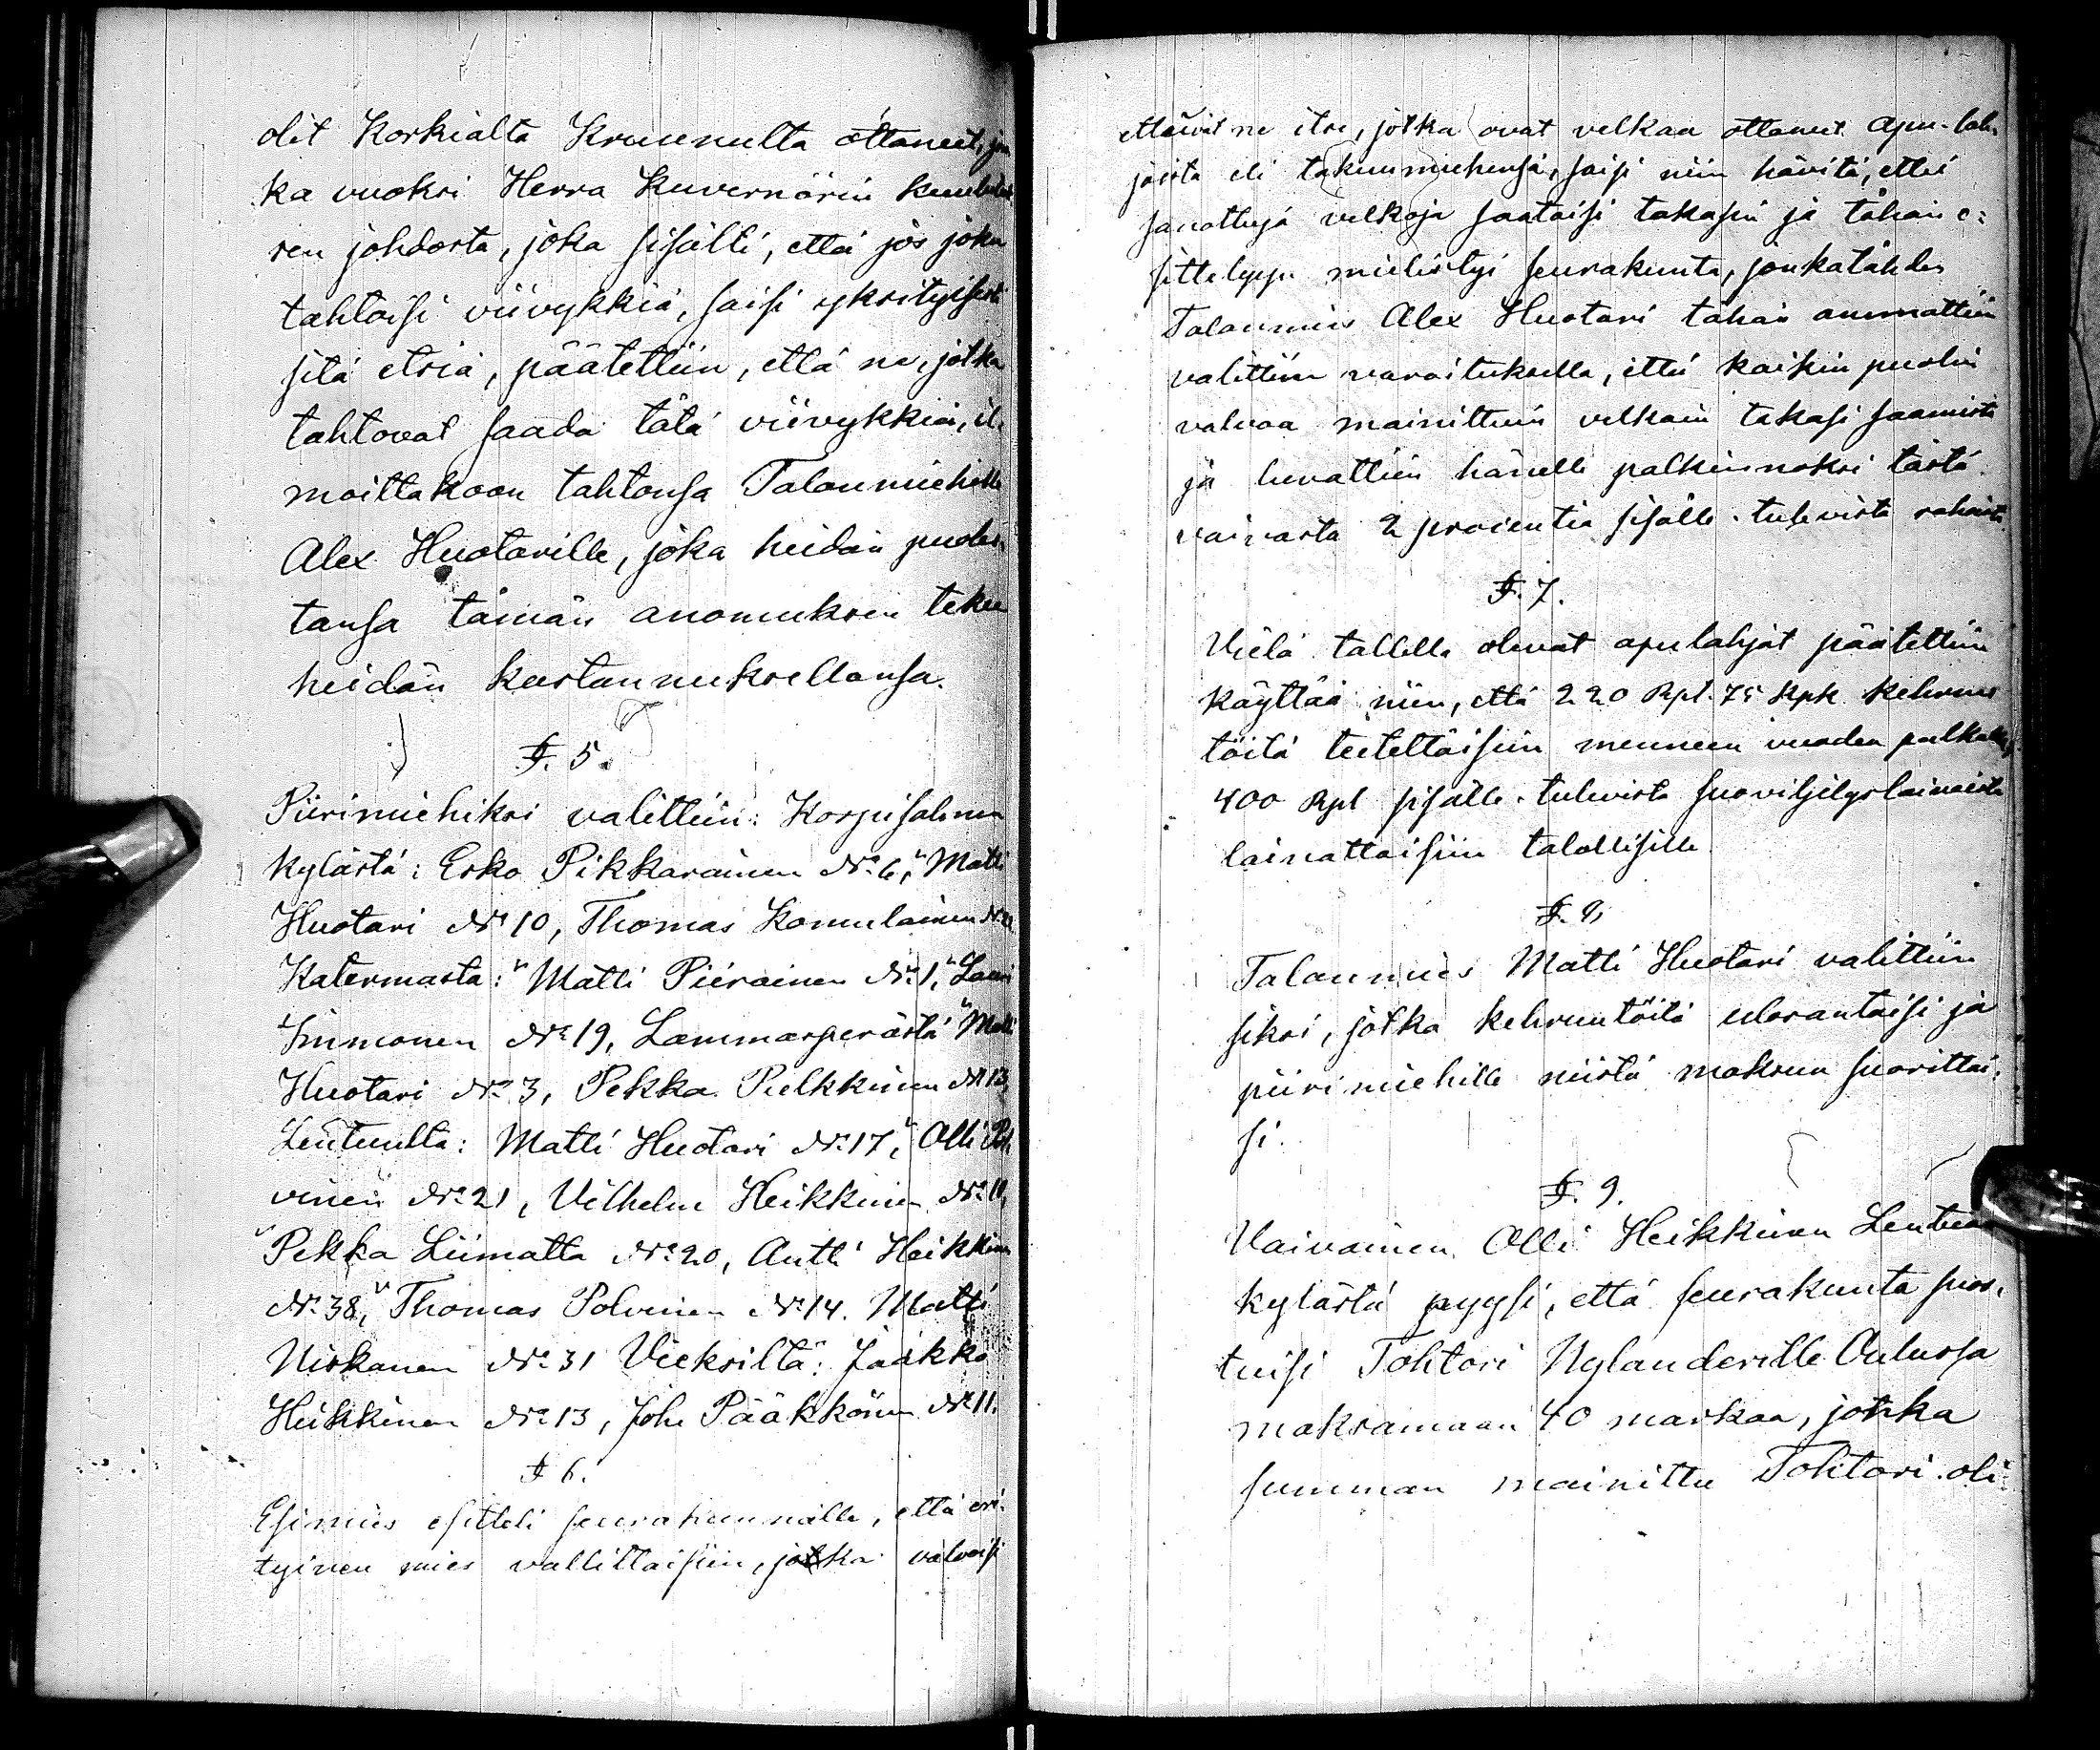 olit Korkialta Kruunulta ottaneet, jon
ka vuoksi Herra Kuvernörin kuulutuk
sen johdosta, joka sisälsi, että jos joku
tahtoisi viivykkiä, saisi yksityisesti
sitä etsiä, päätettiin, että ne, jotka
tahtovat saada tätä viivykkiä, il-
moittakoon tahtonsa Talonmiehelle
Alex Huotarille, joka heidän puoles-
tansa tämän anomuksen tekee
heidän kustannuksellansa.
§. 5.
Piirimiehiksi valittiin: Korpisalmen
kylästä: Esko Pikkarainen No 6, Matti
Huotari No 10, Thomas Komulainen
Katermasta: Matti Piirainen No 1, Lauri
Immonen No 19, Lammasperästä Matti
Huotari No 3, Pekka Pulkkinen No 13,
Lentuulta: Matti Huotari No 17, Olli Pol
vinen No 21, Vilhelm Heikkinen No 11,
Pekka Liimatta No 20, Antti Heikkinen
No 38, Thomas Polvinen No 14. Matti
Niskanen No 31 Vieksiltä: Jaakko
Heikkinen No 13, Joh. Pääkkönen No 11.
§ 6.
Esimies esitteli seurakunnalle, että eri-
tyinen mies vallittaisiin, jotka valvoisi
ettäivät ne itse, jotka ovat velkaa ottaneet apu-lah-
joista eli takuumiehensä, saisi niin hävitä, ettei
sanottuja velkoja saataisi takasin ja tähän e-
sittelyyn mielistyi seurakunta, jonkatähden
Talonmies Alex Huotari tähän ammattiin
valittiin varoituksella, että kaikin puolin
valvoa mainittuin velkain takasi saamista
ja luvattiin hänelle palkinnoksi tästä
vaivasta 2 prosentia sisälle-tulevista rahoista.
§. 7.
Vielä tallella olevat apulahjat päätettiin
käyttää niin, että 220 Rpl. 75 kpk kehruu
töitä teetettäisiin menneen vuoden palkalla,
400 Rpl sisälle-tulevista suoviljelyslainoista
lainattaisiin talollisille.
§. 8.
Talonmies Matti Huotari valittiin
siksi, jotka kehruutöitä ulosantaisi ja
piirimiehille niistä maksun suorittai-
si.
§. 9.
Vaivainen Olli Heikkinen Lentuan
kylästä pyysi, että seurakunta suos-
tuisi Tohtori Nylanderille Oulussa
maksamaan 40 markaa, jonka
summan mainittu Tohtori oli